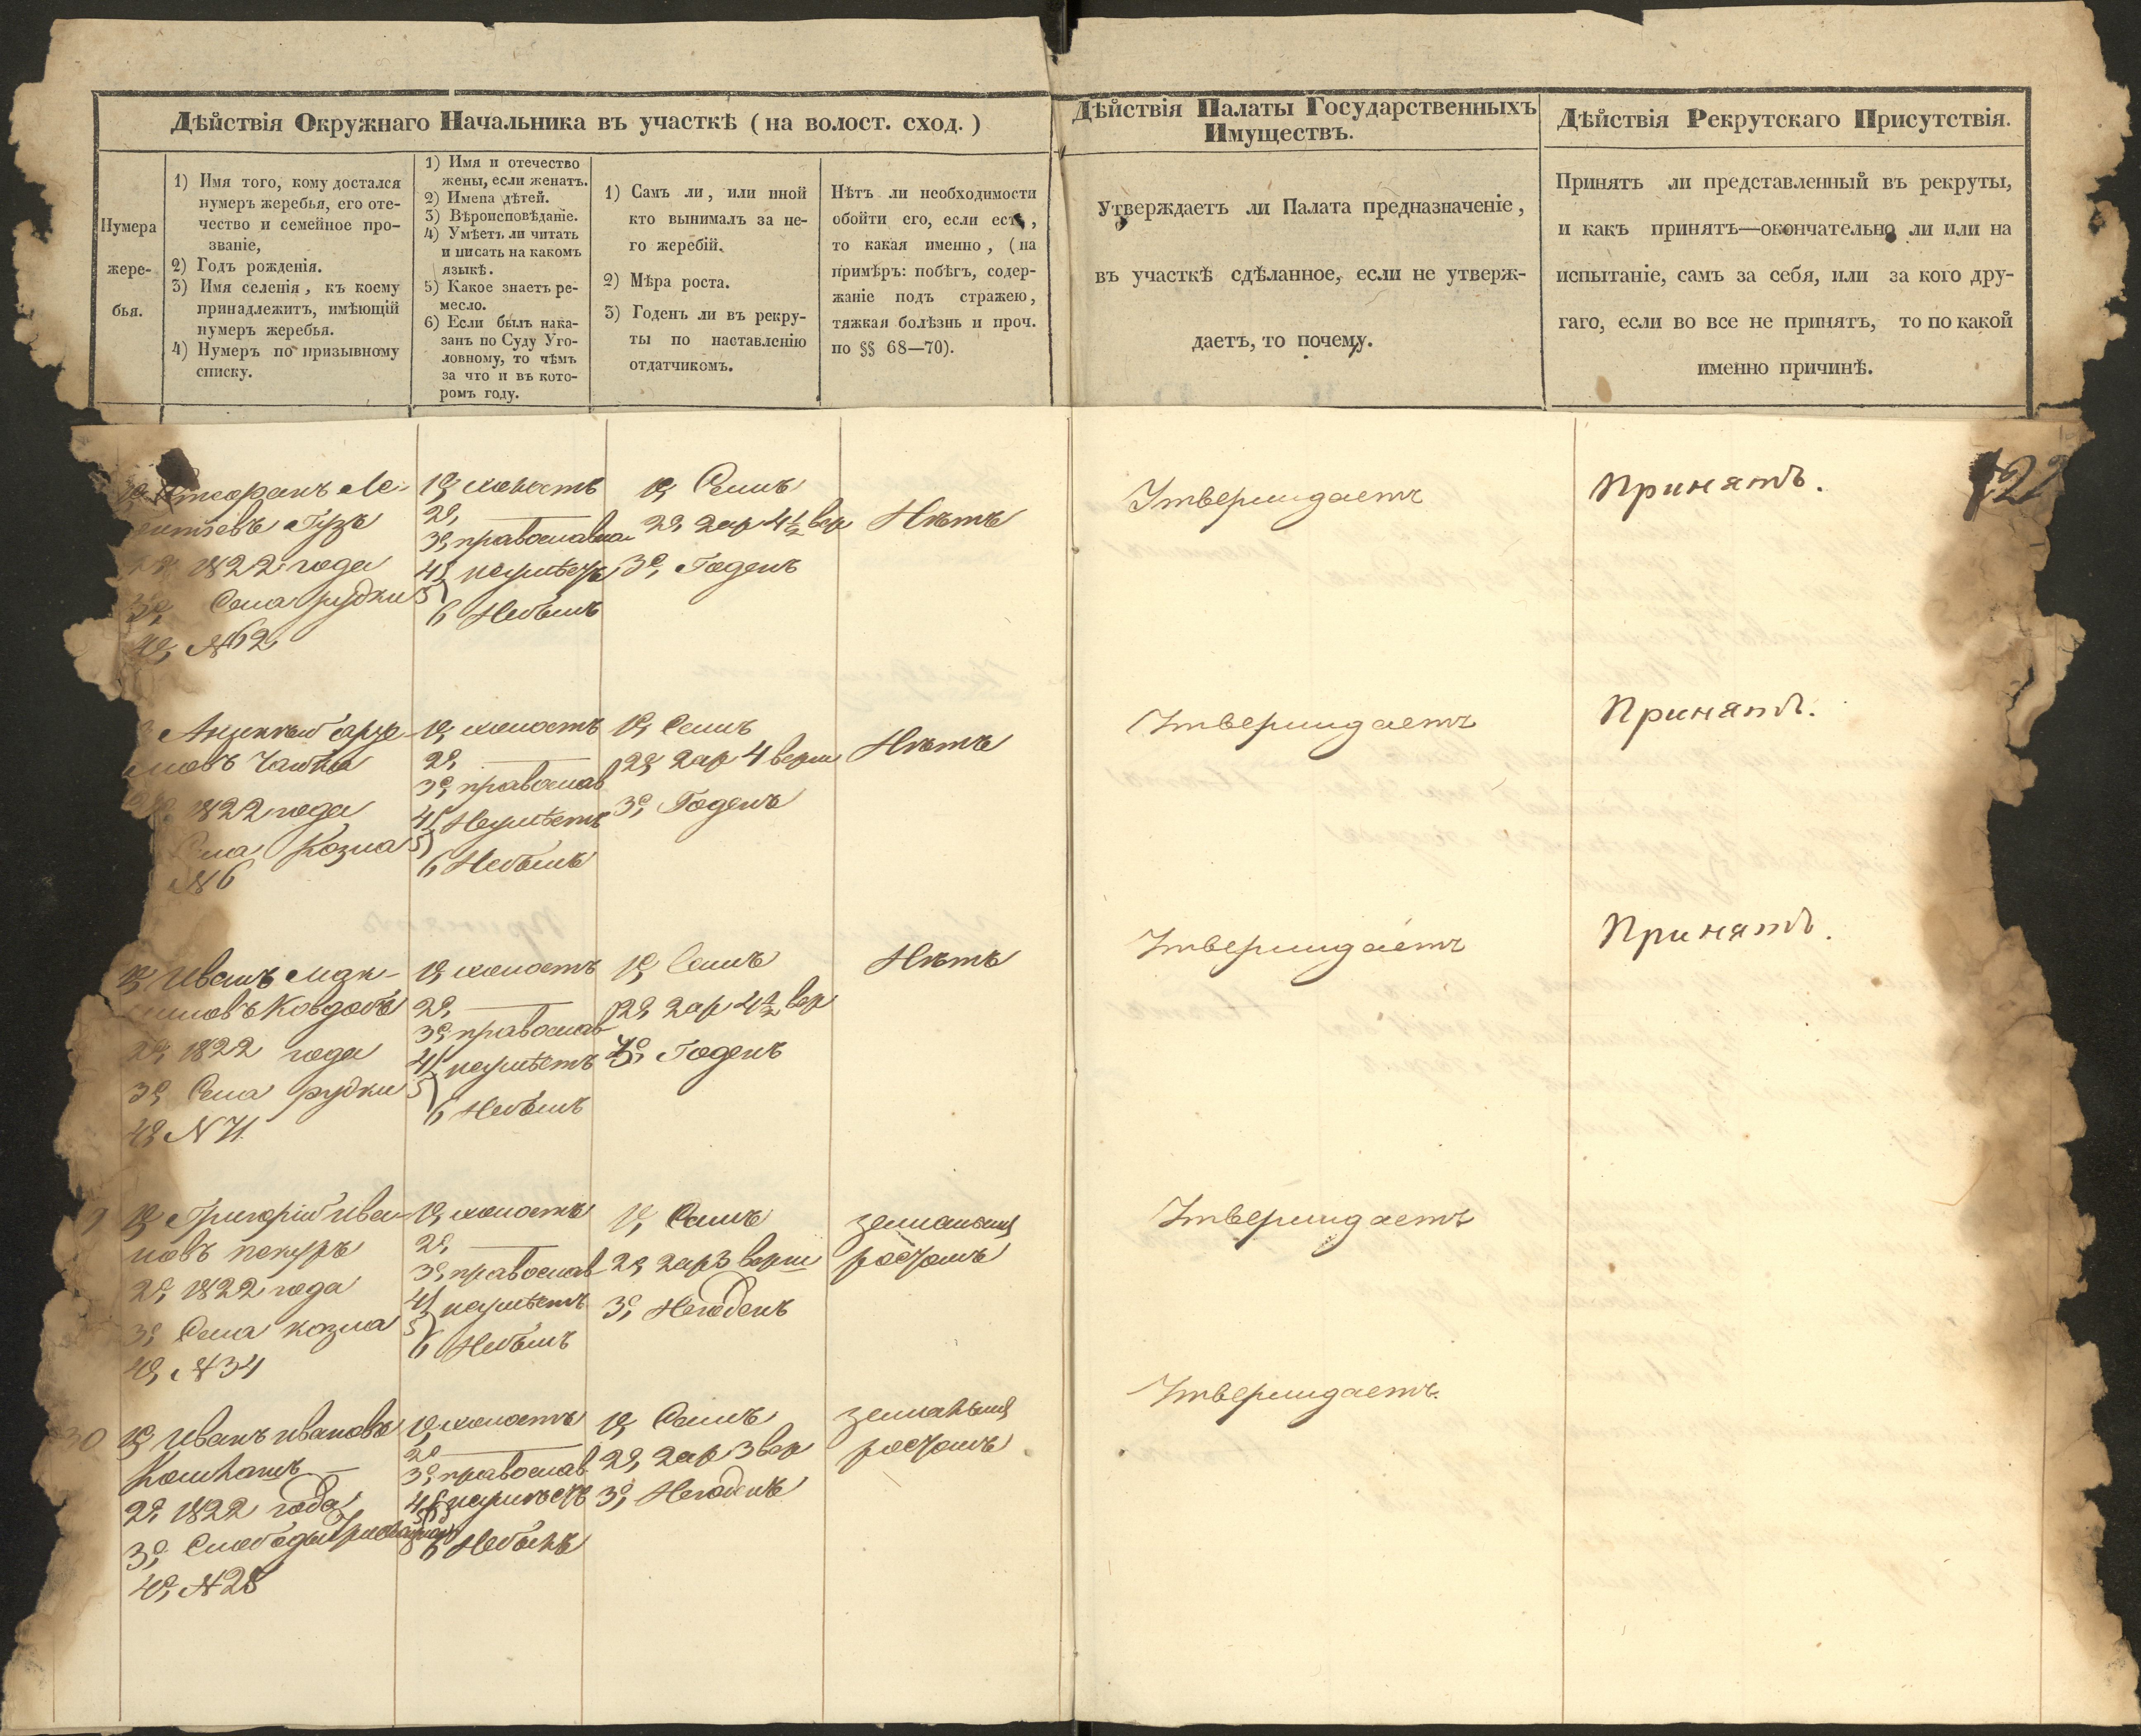 Дѣйствія Окружнаго Начальника въ участкѣ (на волост. сход.)
Нумера
жере-
бья.
1) Имя того, кому достался
нумеръ жеребья, его оте-
чество и семейное про-
званіе,
2) Годъ рожденія.
3) Имя селенія, къ коему
принадлежитъ, имѣющій
нумеръ жеребья.
4) Нумеръ по призывному
списку.
1) Имя и отечество
жены, если женатъ.
2) Имена дѣтей.
3) Вѣроисповѣданіе.
4) Умѣетъ ли читать
и писать на какомъ
языкѣ.
5) Какое знаетъ ре-
месло.
6) Если былъ нака-
занъ по Суду Уго-
ловному, то чѣмъ
за что и въ кото-
ромъ году.
1) Самъ ли, или иной
кто вынималъ за не-
го жеребій.
2) Мѣра роста.
3) Годенъ ли въ рекру-
ты по наставленію
отдатчикомъ.
Нѣтъ ли необходимости
обойти его, если есть,
то какая именно, (на
примѣръ: побѣгъ, содер-
жаніе подъ стражею,
тяжкая болѣзнь и проч.
по §§ 68—70).
Дѣйствія Палаты Государственныхъ
Имуществъ.
Утверждаетъ ли Палата предназначеніе,
въ участкѣ сдѣланное, если не утверж-
даетъ, то почему.
Дѣйствія Рекрутскаго Присутствія.
Принятъ ли представленный въ рекруты,
и какъ принятъ—окончательно ли или на
испытаніе, самъ за себя, или за кого дру-
гаго, если во все не принятъ, то по какой
именно причинѣ.
122
Гузъ
1822 года
3е, Села рудки
4е, №62
1е, холостъ
2е, —
3е, православна
4) неумѣетъ
5)
6 Небылъ
1е, Самъ
2е, 2 ар 4½ вер
3е, Годенъ
Нѣтъ
Утверждаетъ
Принятъ.
1822 года
Села Козла
№6
1е, холостъ
2е, —
3е, православ
4) Неумѣетъ
5)
6 Небылъ
1е, Самъ
2е, 2 ар 4 верш
3е, Годенъ
Нѣтъ
Утверждаетъ
Принятъ.
1е, Иванъ Мак-
симовъ Ковдобъ
2е, 1822 года
3е, Села рудки
4е, №71.
1е, холостъ
2е, —
3е, православ
4) неумѣетъ
5)
6 Небылъ
1е, Самъ
2е, 2 ар 4½ вер
3е, Годенъ
Нѣтъ
Утверждаетъ
Принятъ.
9
1е, Григорій Ива-
новъ
2е, 1822 года
3е, Села козла
4е, №34
1е, холостъ
2е, —
3е, православ
4) неумѣетъ
5)
6 Небылъ
1е, Самъ
2е, 2 ар 3 верш
3е, Негоденъ
замалымъ
ростомъ
Утверждаетъ
30
1е, Иванъ Ивановъ
2е, 1822 года
3е, Слободы
4е, №28
1е, холостъ
2е —
3е, православ
4) неумѣетъ
5)
6 Небылъ
1е, Самъ
2е, 2 ар 3 вер
3е, Негоденъ
замалымъ
ростомъ
Утверждаетъ.